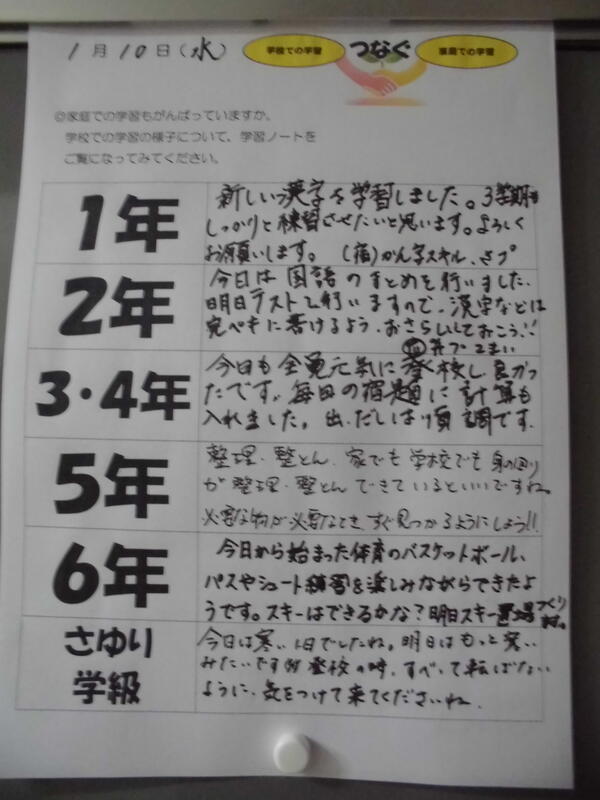 1月10日(水)
学校での学習 つなぐ 家庭での学習
◎家庭での学習もがんばっていますか。
学校での学習の様子について、学習ノートを
ご覧になってみてください。
1年
新しい漢字を学習しました。3学期も
しっかりと練習させたいと思います。よろしく
お願いします。(宿)かん字スキル、さプ
2年
今日は国語のまとめを行いました。
明日テストを行いますので、漢字などは
完ペキに書けるよう、おさらいしておこう!!
3・4年
今日も全員元気に登校し良かっ
たです。毎日の宿題に計算も
入れました。出だしは順調です。
5年
整理・整とん、家でも学校でも身の回り
が整理・整とんできているといいですね。
必要な物が必要なとき、すぐ見つかるようにしよう!!
6年
今日から始まった体育のバスケットボール、
パスやシュート練習を楽しみながらできたよ
うです。スキーはできるかな?明日スキー置場づくり
さゆり
学級
今日は寒い1日でしたね。明日はもっと寒い
みたいです。登校の時、すべって転ばない
ように、気をつけて来てくださいね。